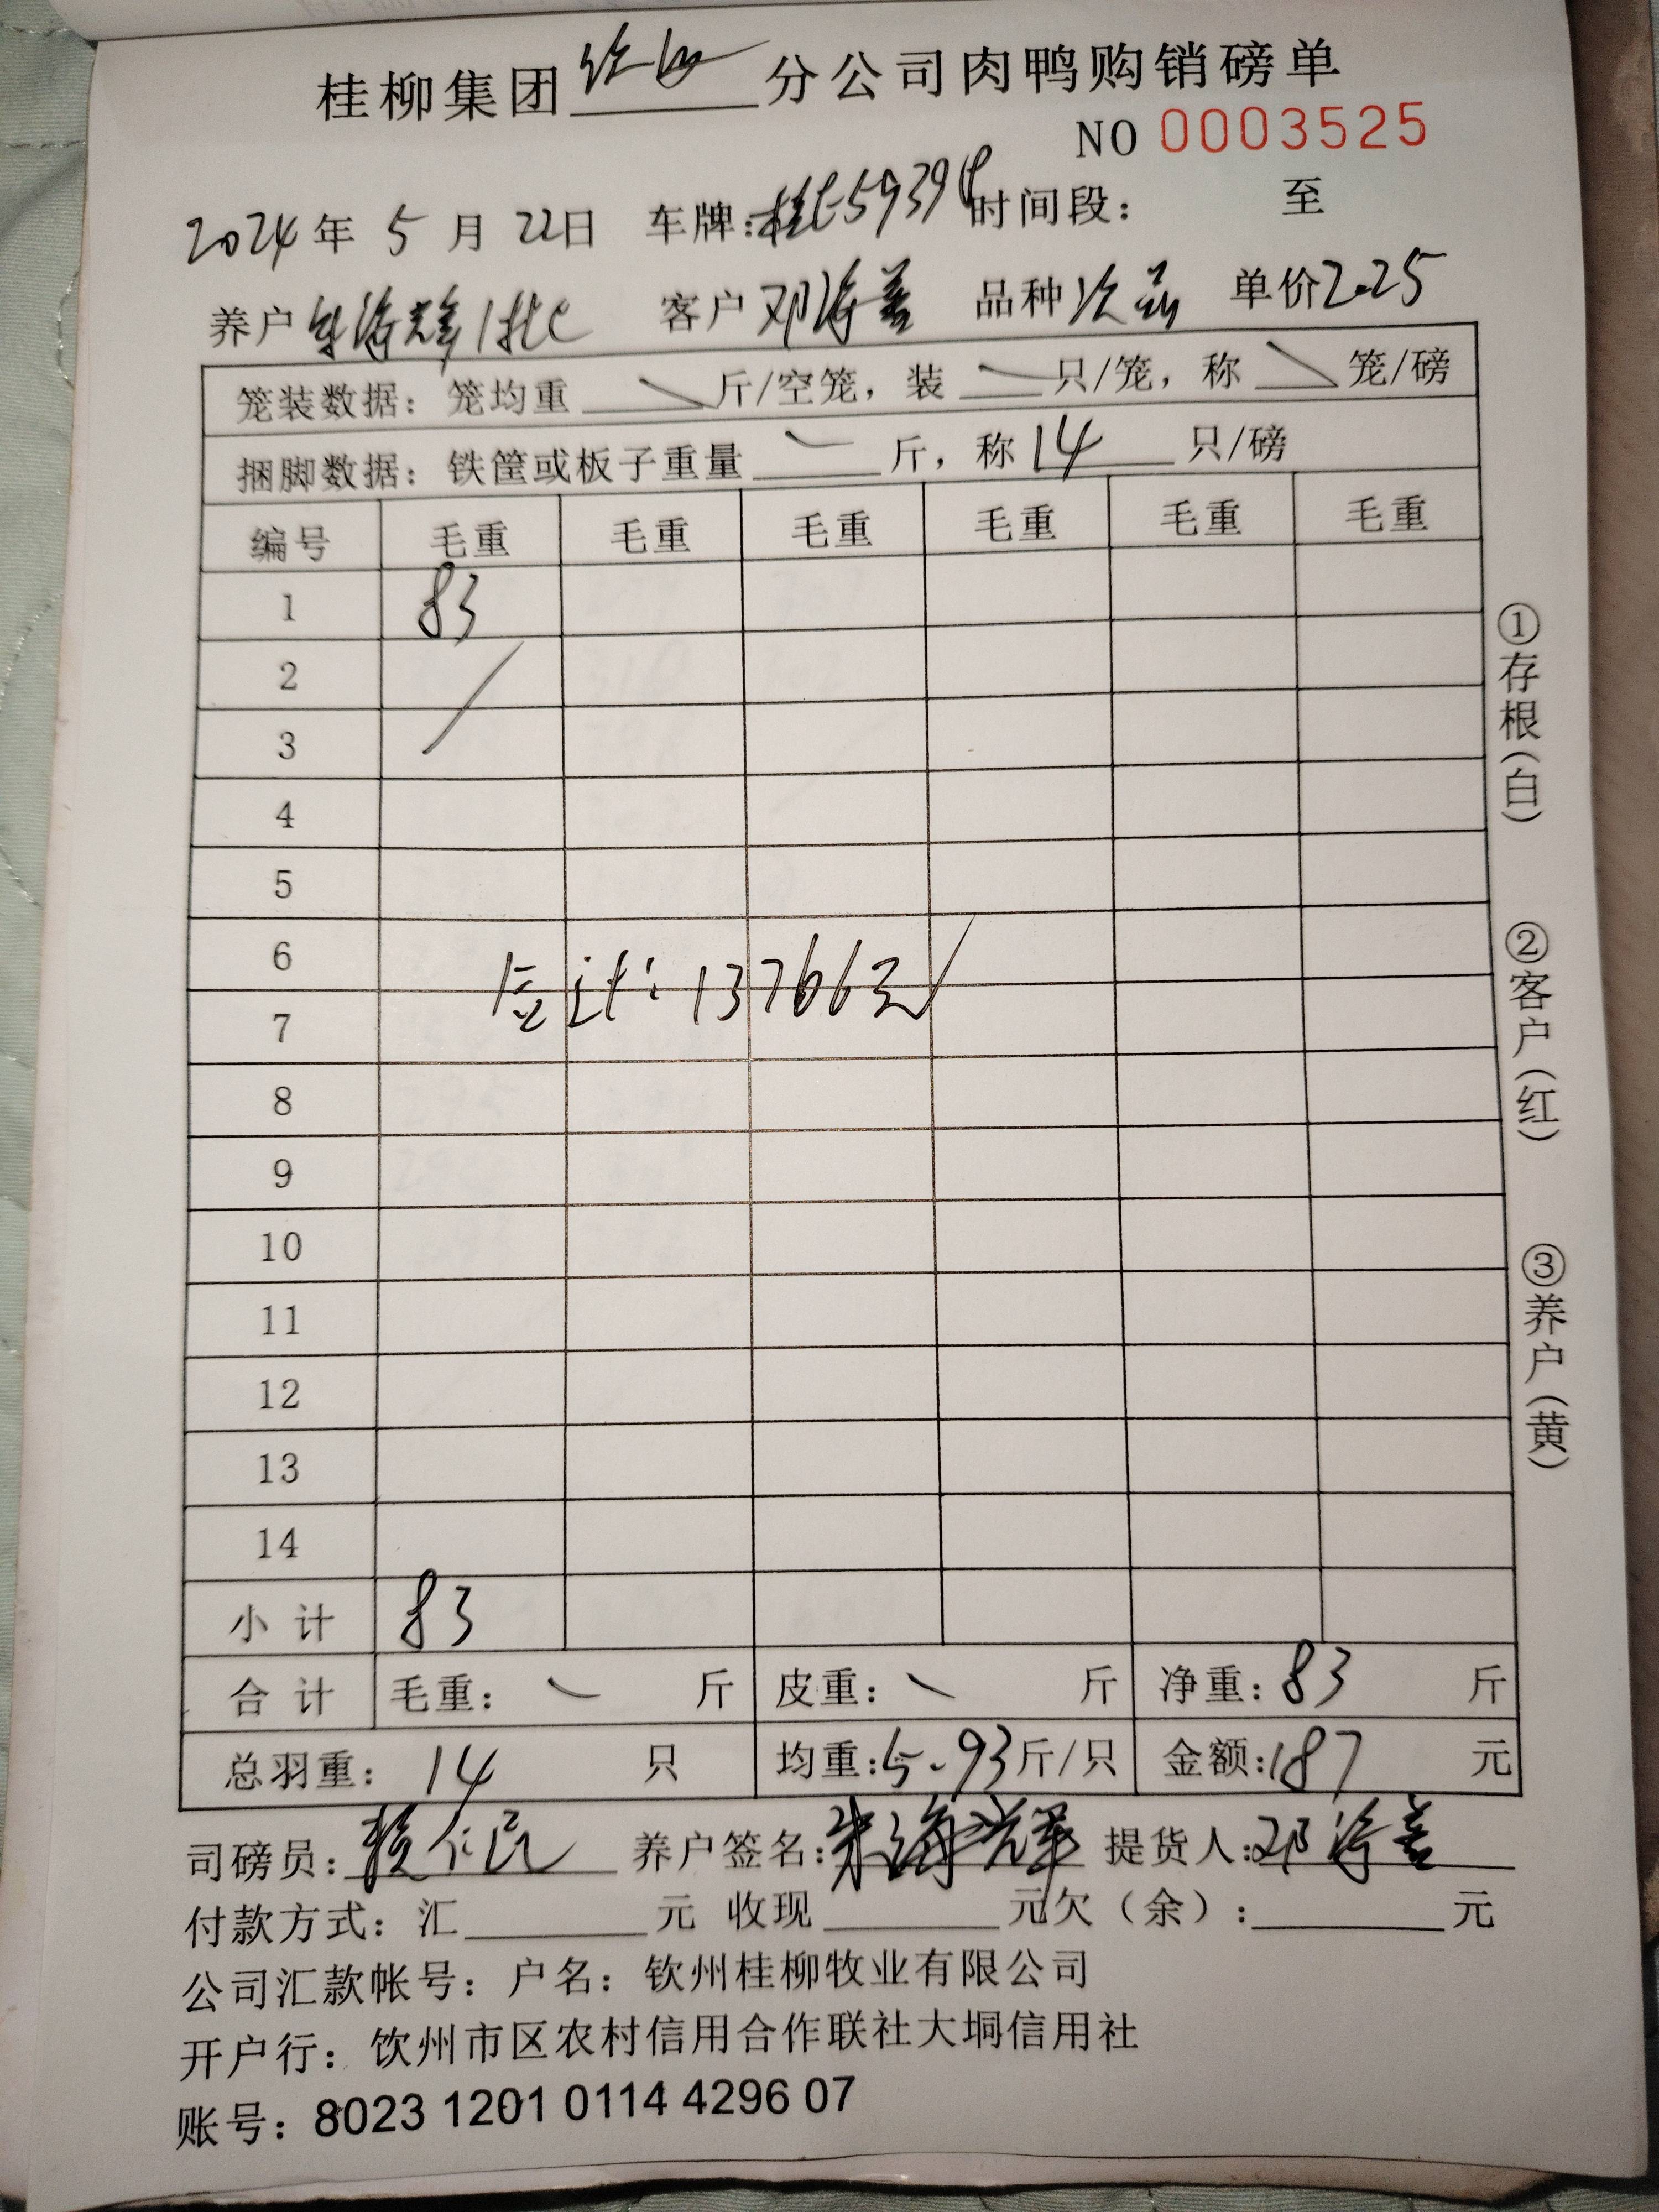 桂柳集团 钦州 分公司肉鸭购销磅单
NO 0003525
2024 年 5 月 22日 车牌: 时间段: 至
养户 朱海辉1批 客户 邓海善 品种 次品 单价2.25
笼装数据: 笼均重 斤/空笼, 装 只/笼, 称 笼/磅
捆脚数据: 铁筐或板子重量 斤, 称 14 只/磅
编号 毛重 毛重 毛重 毛重 毛重 毛重
1 83
2
3
4
5
6
应计: 13766元
7
8
9
10
11
12
13
14
小计 83
合计 毛重: 斤 皮重: 斤 净重: 83 斤
总羽重: 14 只 均重:5.93斤/只 金额:187 元
司磅员: 养户签名:朱海辉 提货人:邓海善
付款方式: 汇 元 收现 元欠(余): 元
公司汇款帐号: 户名: 钦州桂柳牧业有限公司
开户行: 钦州市区农村信用合作联社大垌信用社
账号: 8023 1201 0114 4296 07
①存根(白)
②客户(红)
③养户(黄)